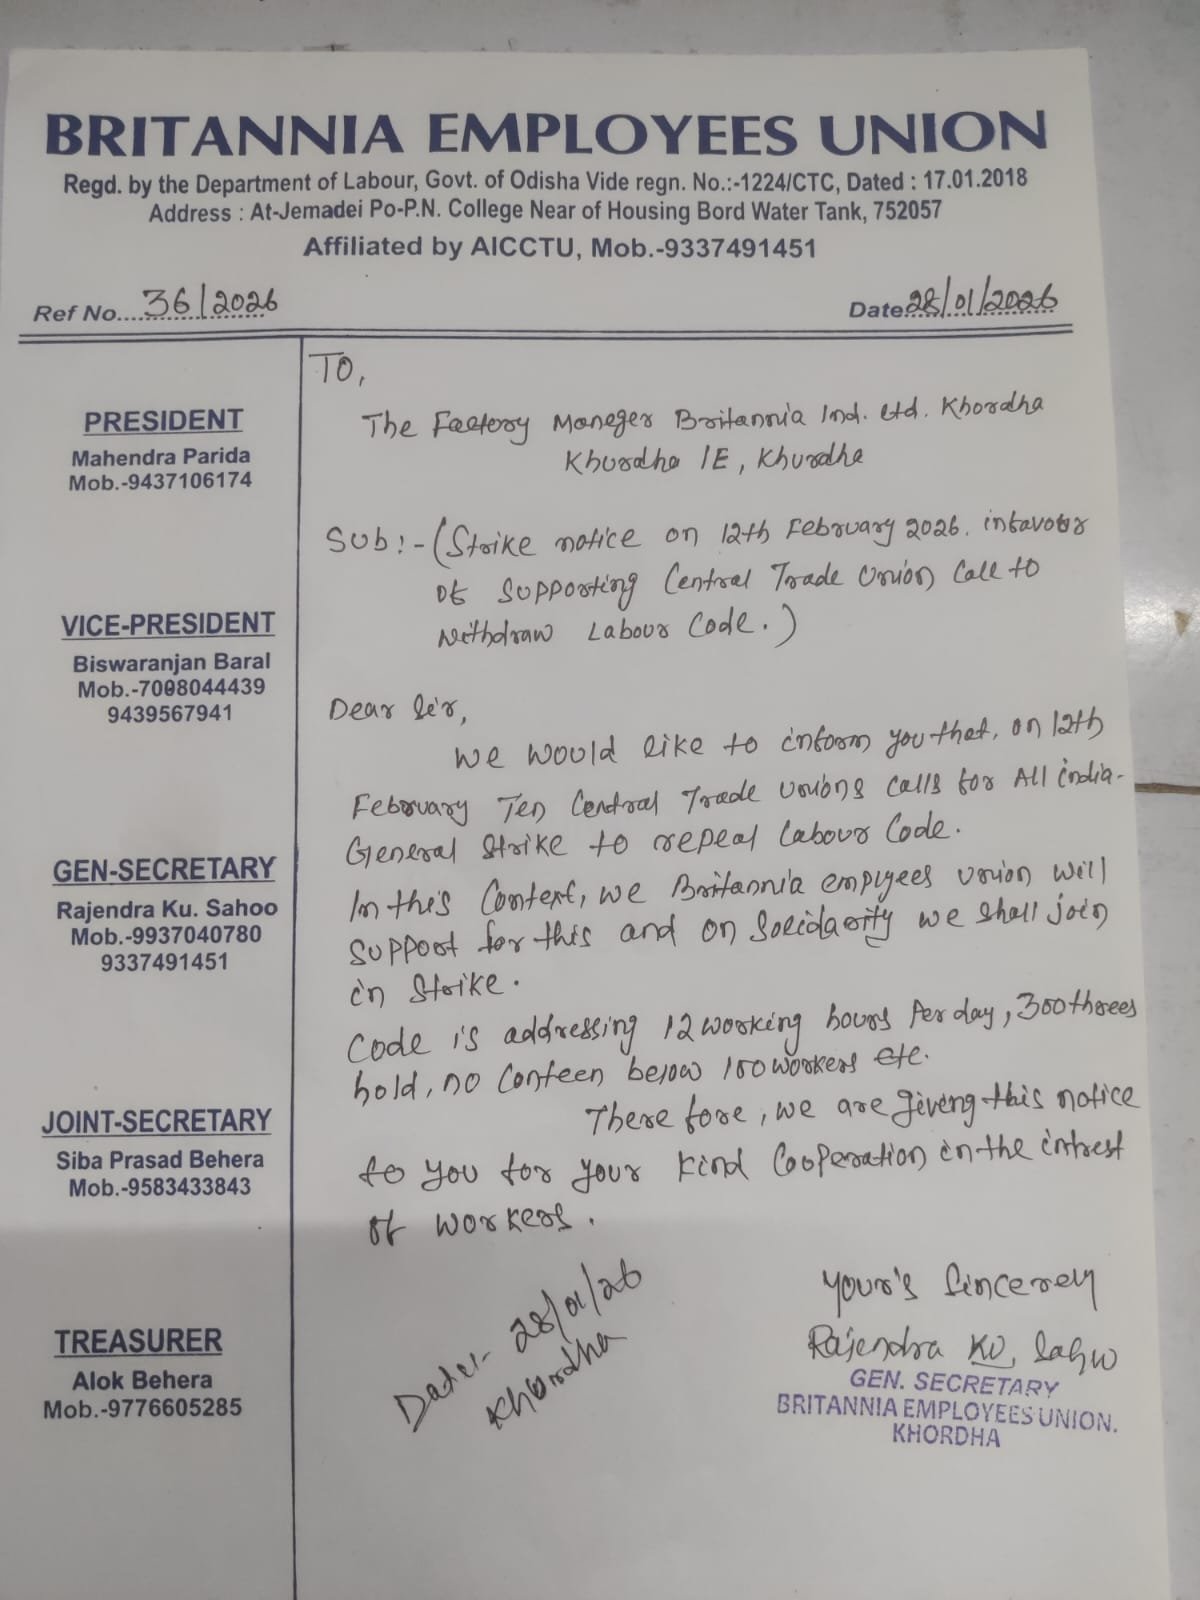 BRITANNIA EMPLOYEES UNION
Regd. by the Department of Labour, Govt. of Odisha Vide regn. No.:-1224/CTC, Dated : 17.01.2018
Address : At-Jemadei Po-P.N. College Near of Housing Bord Water Tank, 752057
Affiliated by AICCTU, Mob.-9337491451
Ref No....36/2026
Date..28/01/2026
PRESIDENT
Mahendra Parida
Mob.-9437106174
VICE-PRESIDENT
Biswaranjan Baral
Mob.-7008044439
9439567941
GEN-SECRETARY
Rajendra Ku. Sahoo
Mob.-9937040780
9337491451
JOINT-SECRETARY
Siba Prasad Behera
Mob.-9583433843
TREASURER
Alok Behera
Mob.-9776605285
TO,
The Factory Maneger Britannia Ind. Ltd. Khordha
Khurdha IE, Khurdha
Sub:-(Strike notice on 12th February 2026. infavour
of supporting Central Trade Union Call to
Withdraw Labour Code.)
Dear Sir,
We would like to inform you that, on 12th
February Ten Central Trade Unions calls for All india-
General Strike to repeal Labour Code.
In this Context, we Britannia emplyees union will
support for this and on Solidarity we shall join
in Strike.
Code is addressing 12 working hours Per day, 300 threes
hold, no Conteen below 100 workers etc.
There fore, we are giveng this notice
to you for your kind Cooperation in the intrest
of workers.
Date:- 28/01/26
Khordha
Your's Sincerely
Rajendra Ku. Sahu
GEN. SECRETARY
BRITANNIA EMPLOYEES UNION.
KHORDHA